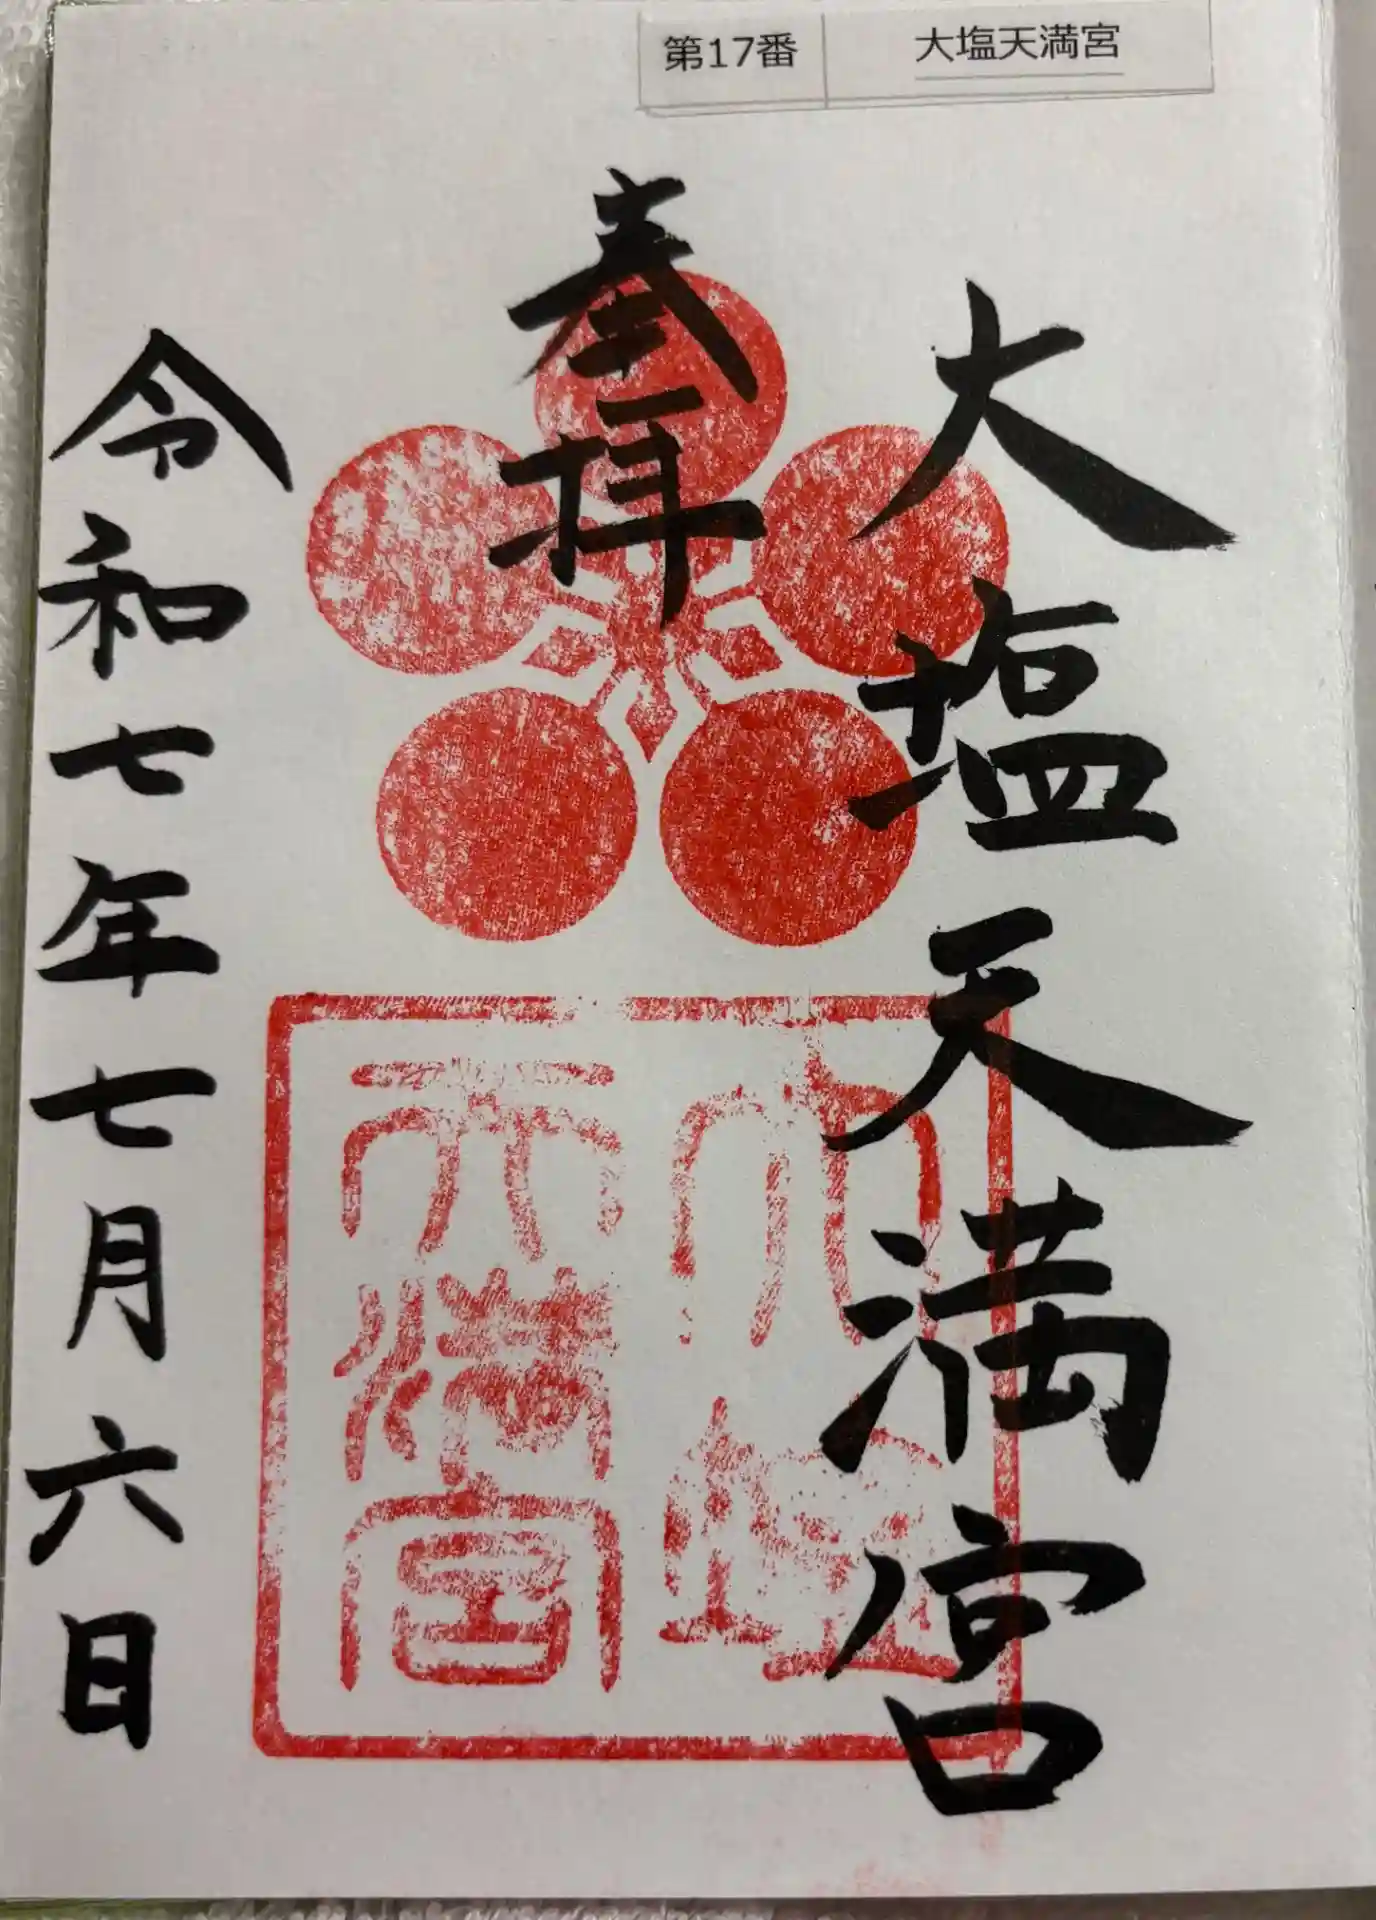 第17番 大塩天満宮
大塩天満宮
奉拝
令和七年七月六日
大塩
天満宮